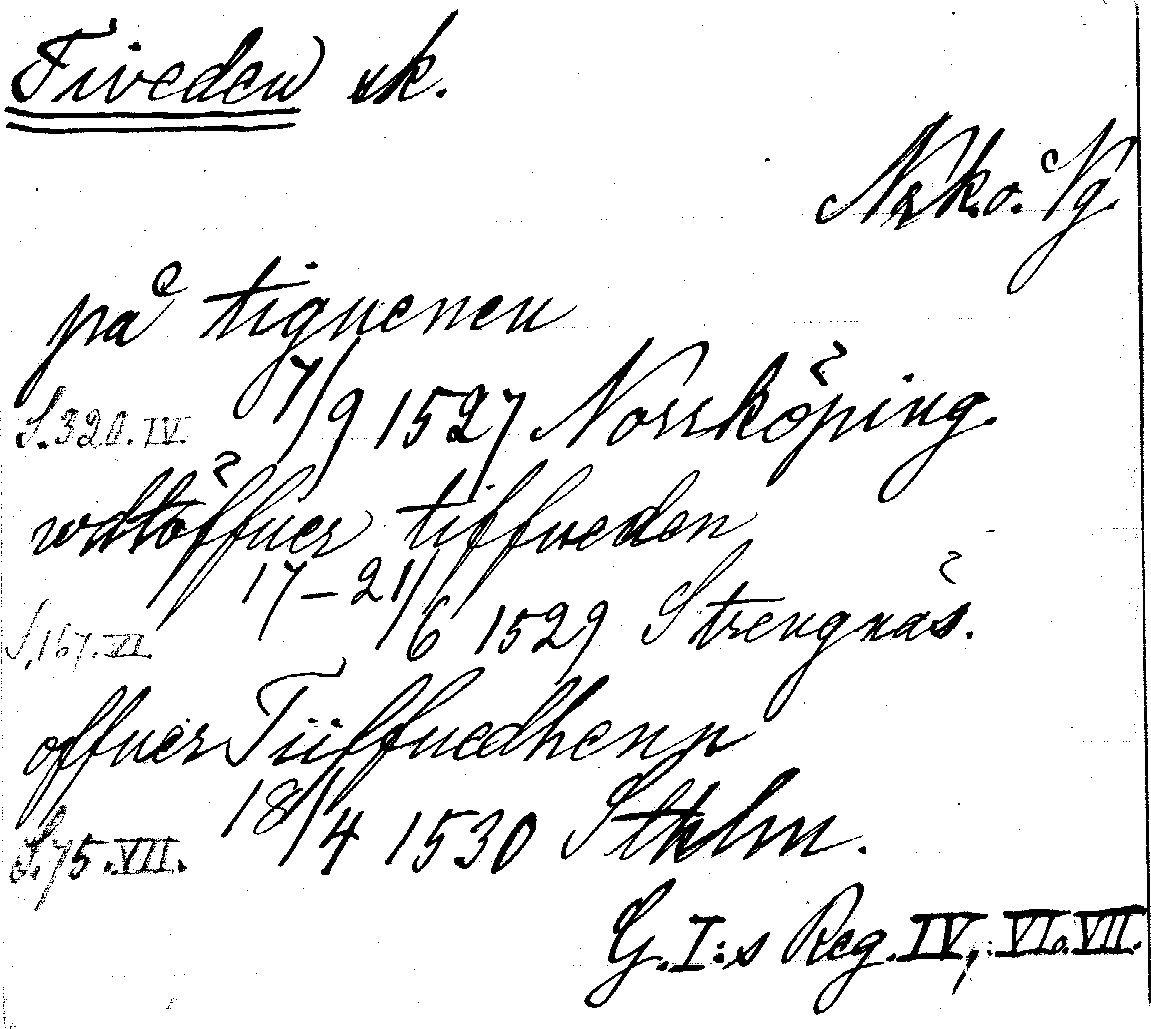 Tiveden sk.
Nrk. o. Vg.
på tiguenen
S. 320. IV. 7/9 1527 Norrköping.
wdtöffuer tiffueden
S. 167. VI. 17–21/6 1529 Strengnäs.
offuer Tiiffuedhenn
S. 75. VII. 18/4 1530 Sthlm.
G. I:s Reg. IV, VI. VII.